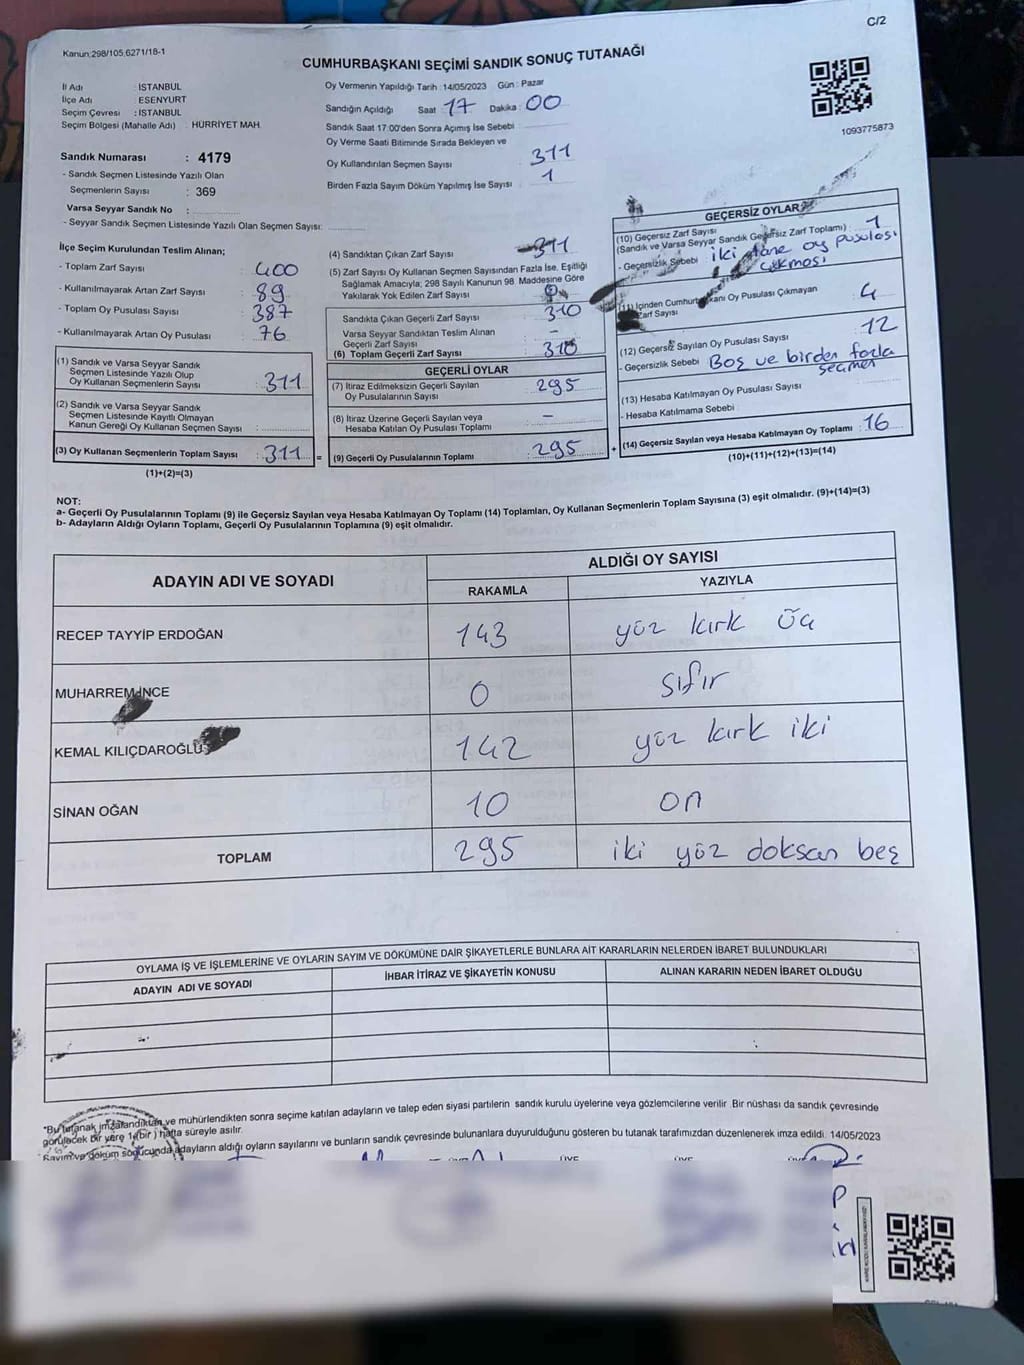 C/2
Kanun:298/105,6271/18-1
CUMHURBAŞKANI SEÇİMİ SANDIK SONUÇ TUTANAĞI
1093775873
İl Adı : İSTANBUL
İlçe Adı : ESENYURT
Seçim Çevresi : İSTANBUL
Seçim Bölgesi (Mahalle Adı) : HÜRRİYET MAH.
Sandık Numarası : 4179
- Sandık Seçmen Listesinde Yazılı Olan
Seçmenlerin Sayısı : 369
Varsa Seyyar Sandık No :
- Seyyar Sandık Seçmen Listesinde Yazılı Olan Seçmen Sayısı:
Oy Vermenin Yapıldığı Tarih :14/05/2023 Gün : Pazar
Sandığın Açıldığı Saat 17 Dakika : 00
Sandık Saat 17:00'den Sonra Açımış İse Sebebi
Oy Verme Saati Bitiminde Sırada Bekleyen ve
Oy Kullandırılan Seçmen Sayısı 311
Birden Fazla Sayım Döküm Yapılmış İse Sayısı : 1
İlçe Seçim Kurulundan Teslim Alınan;
- Toplam Zarf Sayısı : 400
- Kullanılmayarak Artan Zarf Sayısı : 89
- Toplam Oy Pusulası Sayısı : 387
- Kullanılmayarak Artan Oy Pusulası : 76
(1) Sandık ve Varsa Seyyar Sandık
Seçmen Listesinde Yazılı Olup
Oy Kullanan Seçmenlerin Sayısı : 311
(2) Sandık ve Varsa Seyyar Sandık
Seçmen Listesinde Kayıtlı Olmayan
Kanun Gereği Oy Kullanan Seçmen Sayısı :
(3) Oy Kullanan Seçmenlerin Toplam Sayısı : 311 =
(1)+(2)=(3)
(4) Sandıktan Çıkan Zarf Sayısı 311
(5) Zarf Sayısı Oy Kullanan Seçmen Sayısından Fazla İse, Eşitliği
Sağlamak Amacıyla; 298 Sayılı Kanunun 98. Maddesine Göre
Yakılarak Yok Edilen Zarf Sayısı
Sandıkta Çıkan Geçerli Zarf Sayısı : 310
Varsa Seyyar Sandıktan Teslim Alınan
Geçerli Zarf Sayısı : –
(6) Toplam Geçerli Zarf Sayısı : 310
GEÇERLİ OYLAR
(7) İtiraz Edilmeksizin Geçerli Sayılan
Oy Pusulalarının Sayısı : 295
(8) İtiraz Üzerine Geçerli Sayılan veya
Hesaba Katılan Oy Pusulası Toplamı : –
(9) Geçerli Oy Pusulalarının Toplamı : 295 +
GEÇERSİZ OYLAR
(10) Geçersiz Zarf Sayısı
(Sandık ve Varsa Seyyar Sandık Geçersiz Zarf Toplamı) : 1
- Geçersizlik Sebebi iki tane oy pusulası
çıkması
(11) İçinden Cumhurbaşkanı Oy Pusulası Çıkmayan
Zarf Sayısı 4
(12) Geçersiz Sayılan Oy Pusulası Sayısı : 12
- Geçersizlik Sebebi Boş ve birden fazla
seçmen
(13) Hesaba Katılmayan Oy Pusulası Sayısı :
- Hesaba Katılmama Sebebi :
(14) Geçersiz Sayılan veya Hesaba Katılmayan Oy Toplamı : 16
(10)+(11)+(12)+(13)=(14)
NOT:
a- Geçerli Oy Pusulalarının Toplamı (9) ile Geçersiz Sayılan veya Hesaba Katılmayan Oy Toplamı (14) Toplamları, Oy Kullanan Seçmenlerin Toplam Sayısına (3) eşit olmalıdır. (9)+(14)=(3)
b- Adayların Aldığı Oyların Toplamı, Geçerli Oy Pusulalarının Toplamına (9) eşit olmalıdır.
ADAYIN ADI VE SOYADI ALDIĞI OY SAYISI
RAKAMLA YAZIYLA
RECEP TAYYİP ERDOĞAN 143 yüz kırk üç
MUHARREM İNCE 0 sıfır
KEMAL KILIÇDAROĞLU 142 yüz kırk iki
SİNAN OĞAN 10 on
TOPLAM 295 iki yüz doksan beş
OYLAMA İŞ VE İŞLEMLERİNE VE OYLARIN SAYIM VE DÖKÜMÜNE DAİR ŞİKAYETLERLE BUNLARA AİT KARARLARIN NELERDEN İBARET BULUNDUKLARI
ADAYIN ADI VE SOYADI İHBAR İTİRAZ VE ŞİKAYETİN KONUSU ALINAN KARARIN NEDEN İBARET OLDUĞU
"Bu tutanak imzalandıktan ve mühürlendikten sonra seçime katılan adayların ve talep eden siyasi partilerin sandık kurulu üyelerine veya gözlemcilerine verilir .Bir nüshası da sandık çevresinde
görülecek bir yere 1 (bir) hafta süreyle asılır.
Sayım ve döküm sonucunda adayların aldığı oyların sayılarını ve bunların sandık çevresinde bulunanlara duyurulduğunu gösteren bu tutanak tarafımızdan düzenlenerek imza edildi. 14/05/2023
ÜYE ÜYE